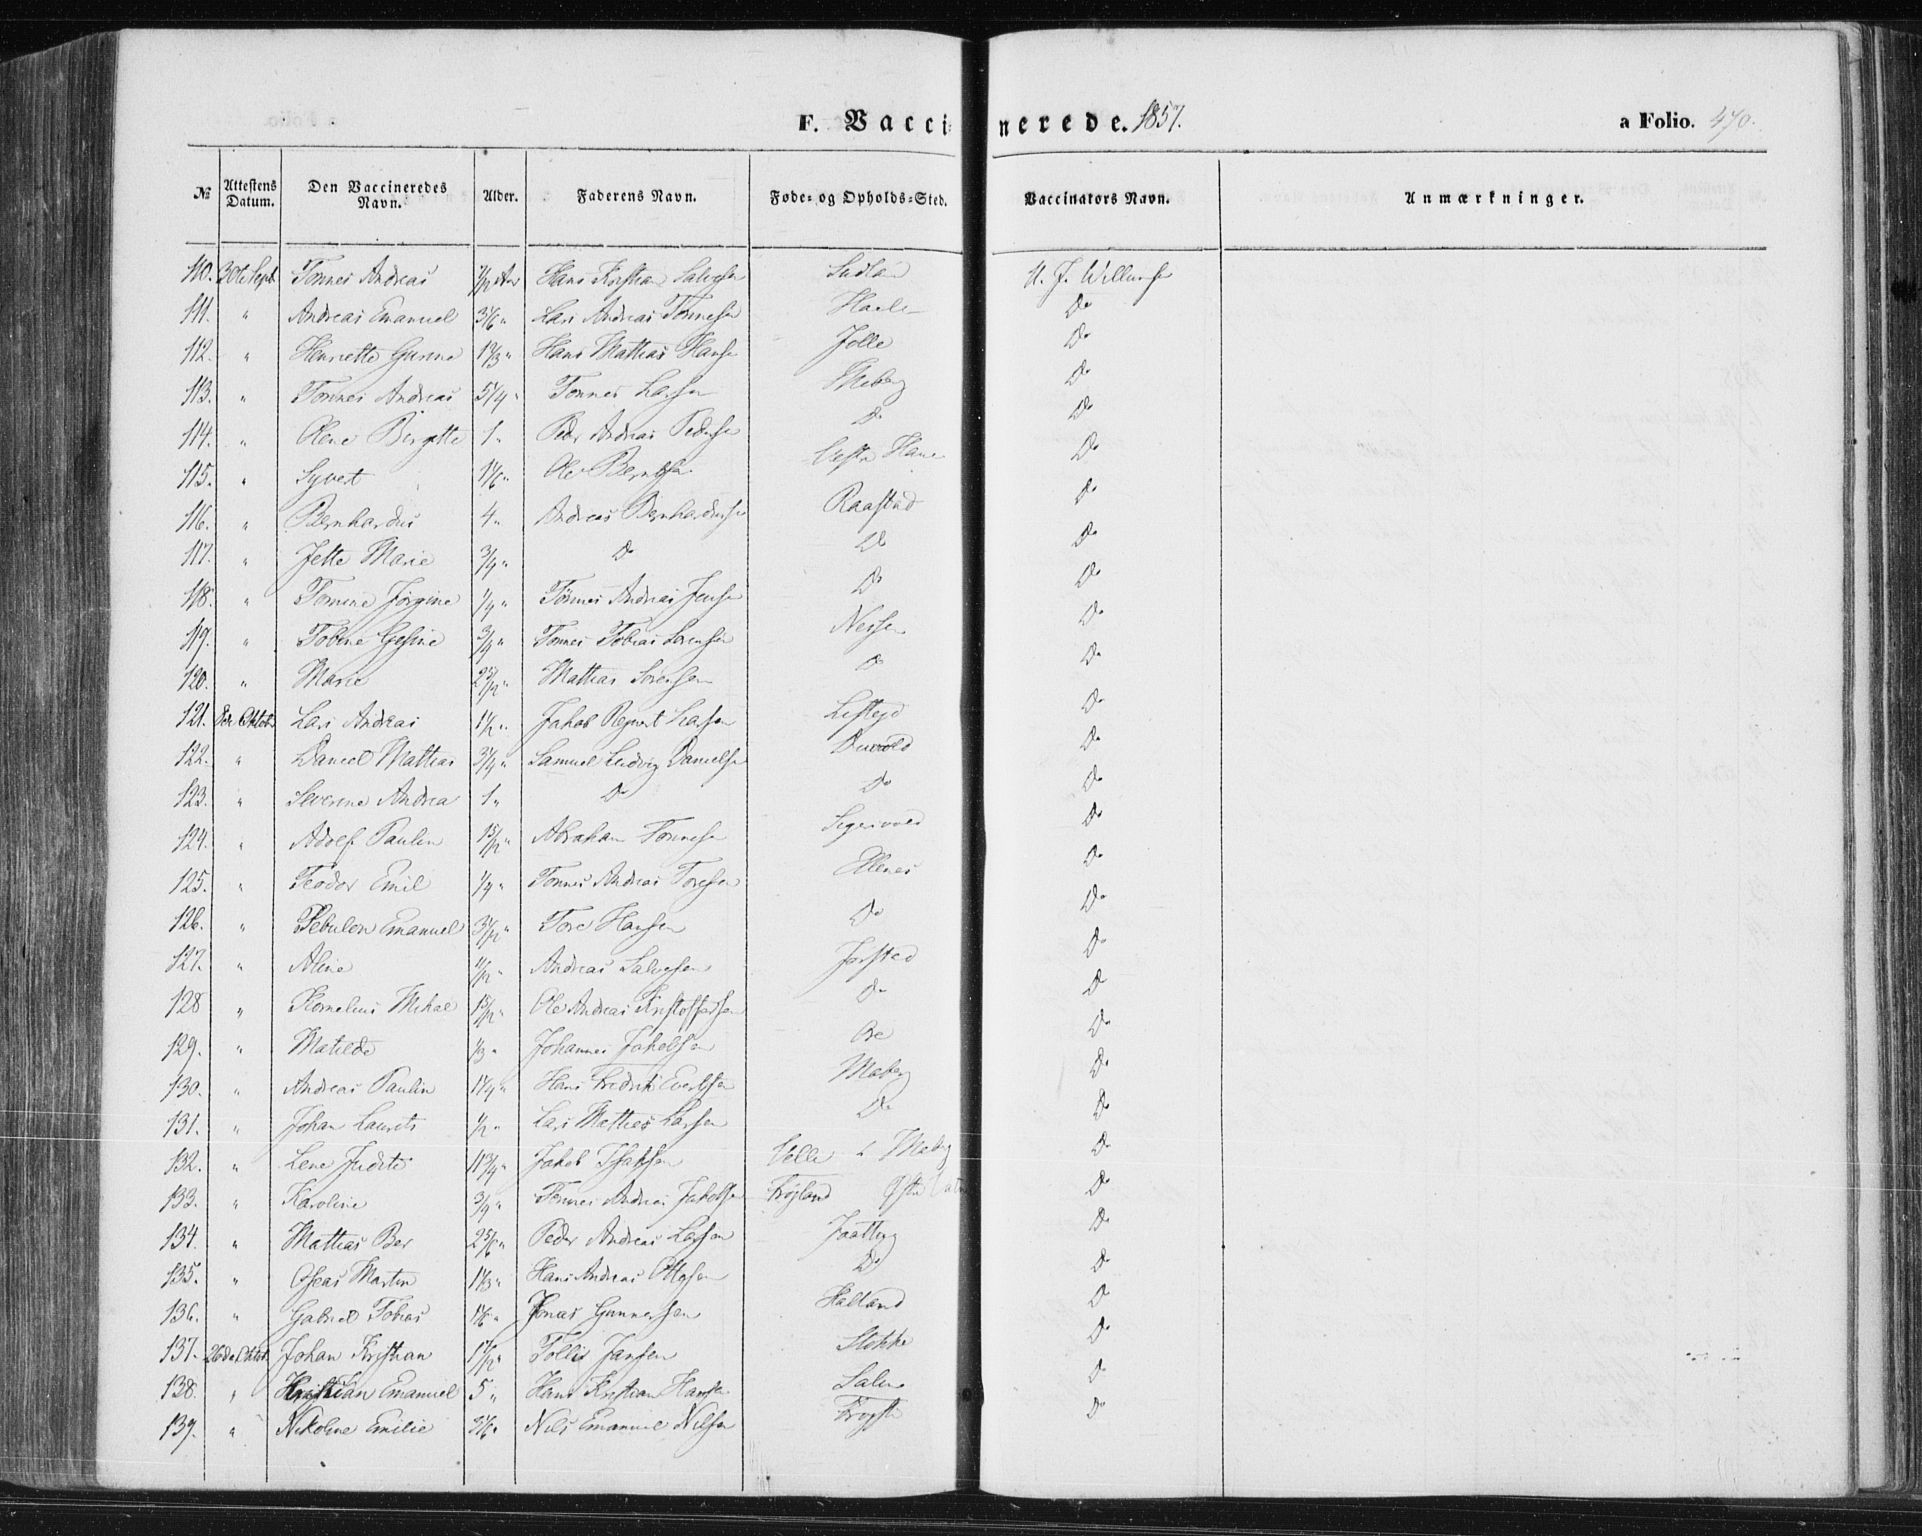 F. Vaccinerede. 1857. a Folio. 470.
№ Attestens Datum. Den Vaccineredes Navn. Alder. Faderens Navn. Føde- og Opholds-Sted. Vaccinators Navn. Anmærkninger.
110. 30te Sept. Tønnes Andreas Hans Kristian Salvesen
111. " Andreas Emanuel 3 1/6 " Lars Andreas Tønnesen Do
112. " Henriette Gurine 1 1/3 " Hans Mathias Hansen Jolle Do
113. " Tønnes Andreas 5 1/4 " Tønnes Larsen Do
114. " Olene Birgitte 1 " Peder Andreas Pedersen Do Do
115. " Syvert 1 1/6 " Ole Berntsen Do
116. " Bernhardus 4 " Andreas Bernhardsen Raastad Do
117. " Jette Marie 3/4 " Do Do Do
118. " Tomine Jørgine 1/4 " Tønnes Andreas Jensen Do Do
119. " Tobine Gesine 3/4 " Tønnes Tobias Sørensen Do
120. " Marie 2 5/12 " Mathias Sørensen Do Do
121. Oktober Lars Andreas 1 1/2 " Jakob Regnert Larsen Do
122. " Daniel Mathias 3 1/4 " Samuel Ludvig Danielsen Do
123. " Severine Andrea 1 " Do Do Do
124. " Adolf Paulin 1 5/12 " Abraham Tønnesen Do
125. " Teodor Emil 1/4 " Tønnes Andreas Toresen Ellenes Do
126. " Sebulon Emanuel 3 1/12 " Tore Hansen Do Do
127. " Aline 11/12 " Andreas Salvesen Jørstad Do
128 " Kornelius Mikal 1 5/12 " Ole Andreas Kristoffersen Do Do
129. " Matilde 1/3 " Johannes Jakobsen Ore Do
130. " Andreas Paulin 1 1/4 " Hans Fredrik Evertsen Maberg Do
131. " Johan Laurits 1/2 " Lars Mathias Larsen Do Do
132. " Lene Judite 11 3/4 " Jakob Isaksen Maberg Do
133. " Karoline 3/4 " Tønnes Andreas Jakobsen Frøjland Do
134. " Mathias Ber 2 5/6 " Peder Andreas Larsen Jaatberg Do
135. " Oseas Martin 1 1/3 " Hans Andreas Ottosen Do Do
136. " Gabriel Tobias 1 1/6 " Jonas Gunnersen Haltand Do
137. 26de Oktob. Johan Kristian 1 1/12 " Tollis Jansen Stokke Do
138. " Kristian Emanuel 5 " Hans Kristian Hansen Do
139. " Nikoline Emilie Nils Emanuel Nilsen Do